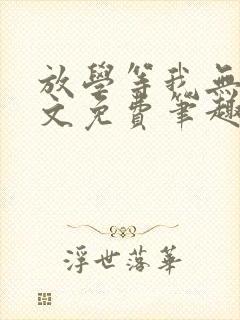 放學等我無
文免費筆趣
浮世落華